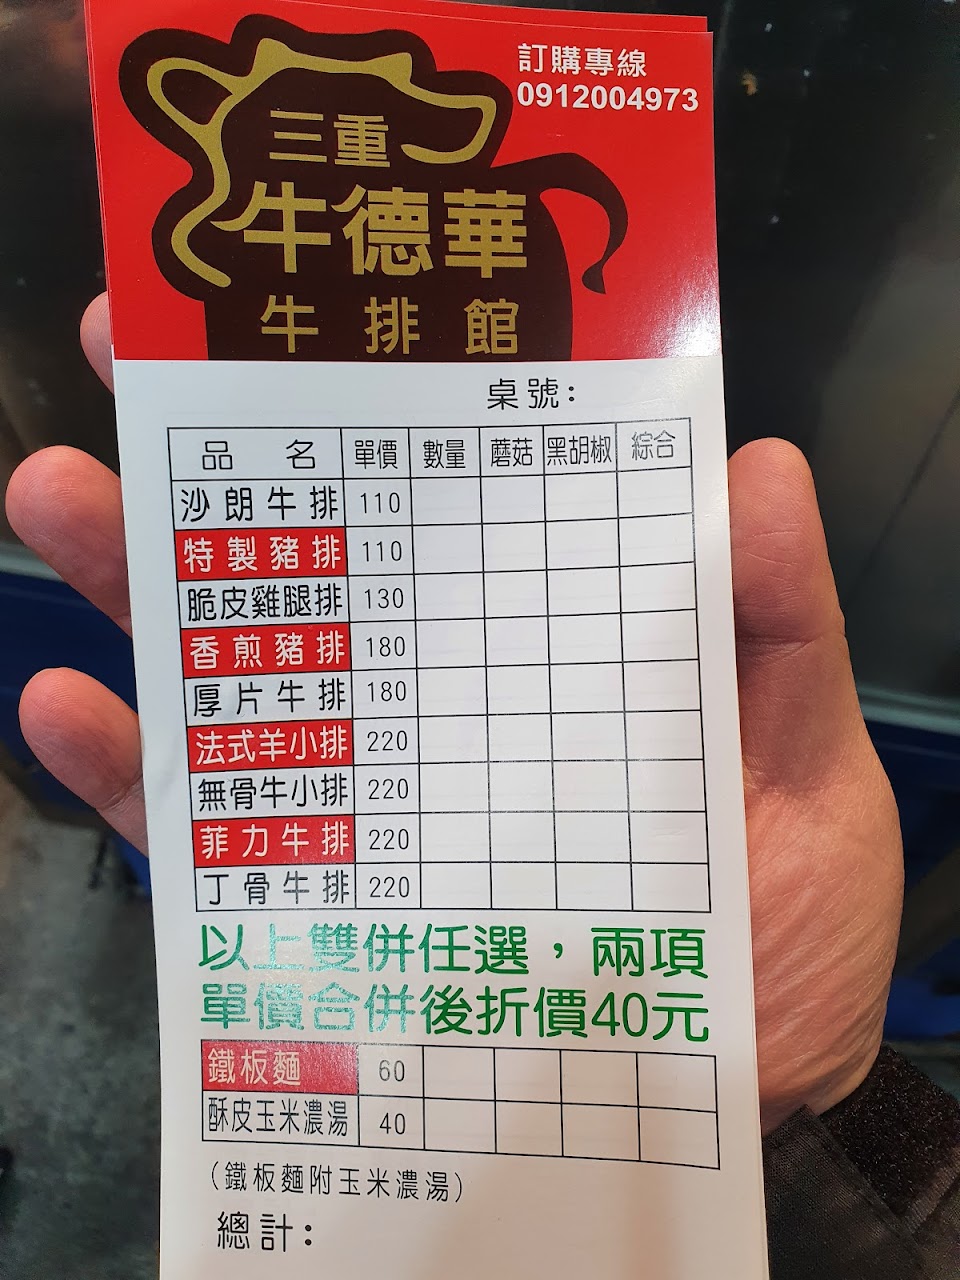 訂購專線
0912004973
三重
牛德華
牛排館
桌號:
品名 單價 數量 蘑菇 黑胡椒 綜合
沙朗牛排 110
特製豬排 110
脆皮雞腿排 130
香煎豬排 180
厚片牛排 180
法式羊小排 220
無骨牛小排 220
菲力牛排 220
丁骨牛排 220
以上雙併任選，兩項
單價合併後折價40元
鐵板麵 60
酥皮玉米濃湯 40
(鐵板麵附玉米濃湯)
總計: